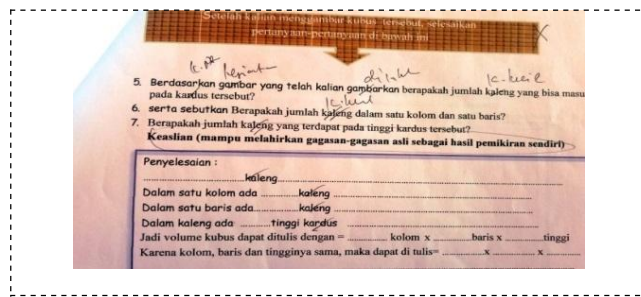 Setelah kalian menggambar kubus tersebut, selesaikan
pertanyaan-pertanyaan di bawah ini
5. Berdasarkan gambar yang telah kalian gambarkan berapakah jumlah kaleng yang bisa masu
pada kardus tersebut?
6. serta sebutkan Berapakah jumlah kaleng dalam satu kolom dan satu baris?
7. Berapakah jumlah kaleng yang terdapat pada tinggi kardus tersebut?
Keaslian (mampu melahirkan gagasan-gagasan asli sebagai hasil pemikiran sendiri)
Penyelesaian :
....................kaleng....................
Dalam satu kolom ada ............kaleng ....................
Dalam satu baris ada............kaleng ....................
Dalam kaleng ada ..........tinggi kardus ....................
Jadi volume kubus dapat ditulis dengan = ............ kolom x ............baris x ............tinggi
Karena kolom, baris dan tingginya sama, maka dapat di tulis= ............x ............ x ............